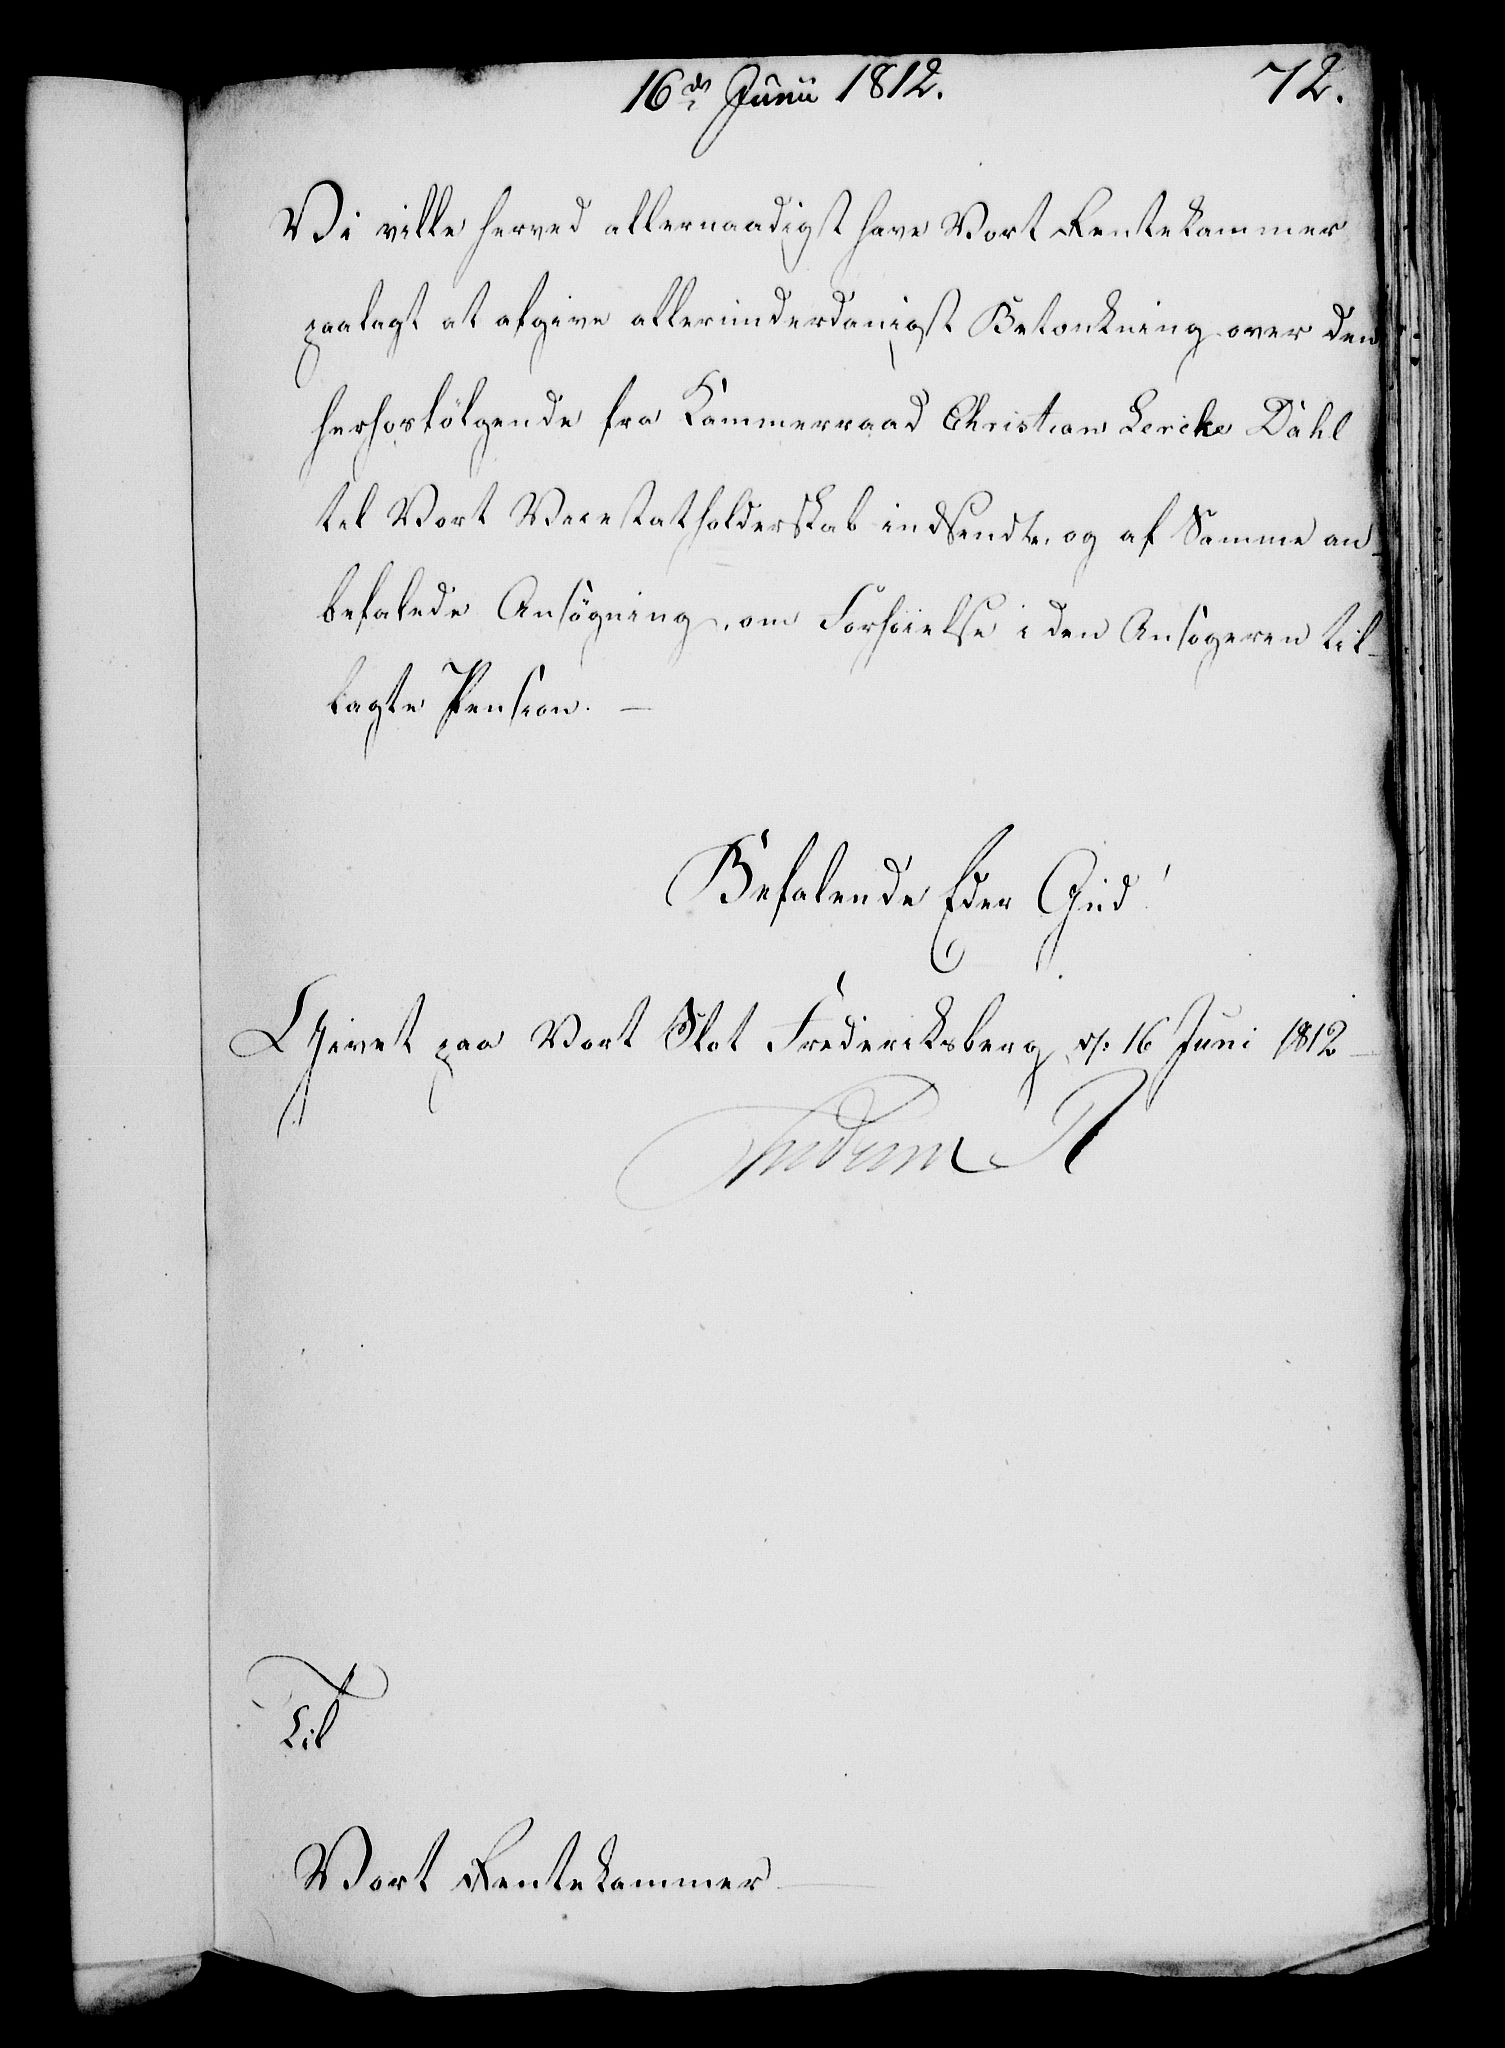 16de Junii 1812. 72.
Vi ville herved allernaadigst have Vort Rentekammer
paalagt at afgive allerunderdanigst Betænkning over den
herhosfölgende fra Kammerraad Christian Lercke Dahl
til Vort Vicestatholderskab indsendte, og af Samme an-
befalede Ansögning, om Forhöielse i den Ansögeren til-
lagte Pension. —
Befalende Eder Gud!
Givet paa Vort Slot Fredericksberg, d: 16 Juni 1812
Frederik R
Til
Vort Rentekammer